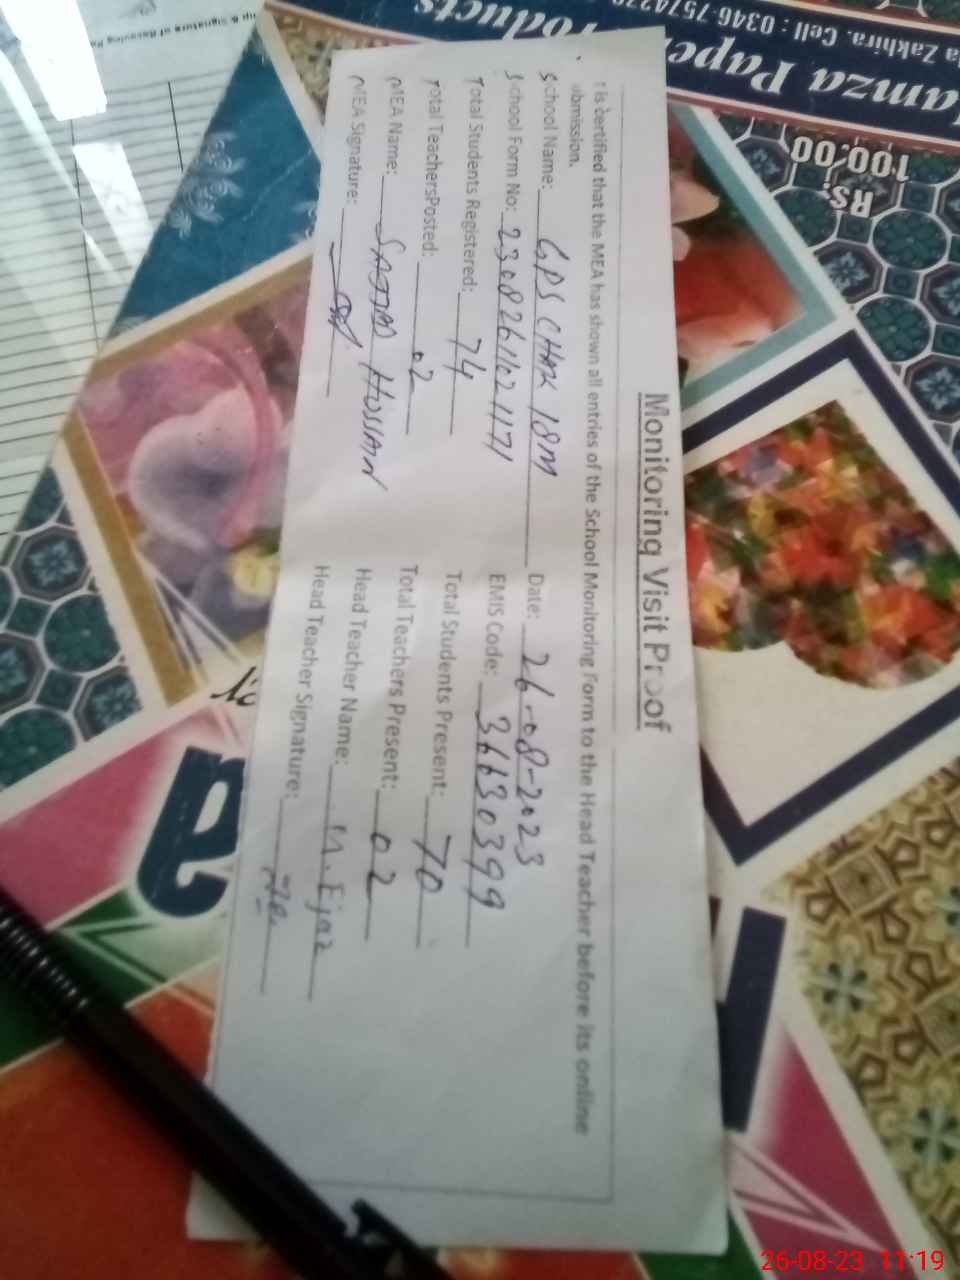 Monitoring Visit Proof
is certified that the MEA has shown all entries of the School Monitoring Form to the Head Teacher before its online
ubmission.
School Name: GPS CHAK 18M Date: 26-08-2023
School Form No: 23082611021171 EMIS Code: 36630399
Total Students Registered: 74 Total Students Present: 70
Total TeachersPosted: 02 Total Teachers Present: 02
MEA Name: SAJJAD HUSSAIN Head Teacher Name: M. Ejaz
MEA Signature: Head Teacher Signature:
amza Paper Products
Zakhira. Cell : 0346-757
RS.
100.00
26-08-23 11:19